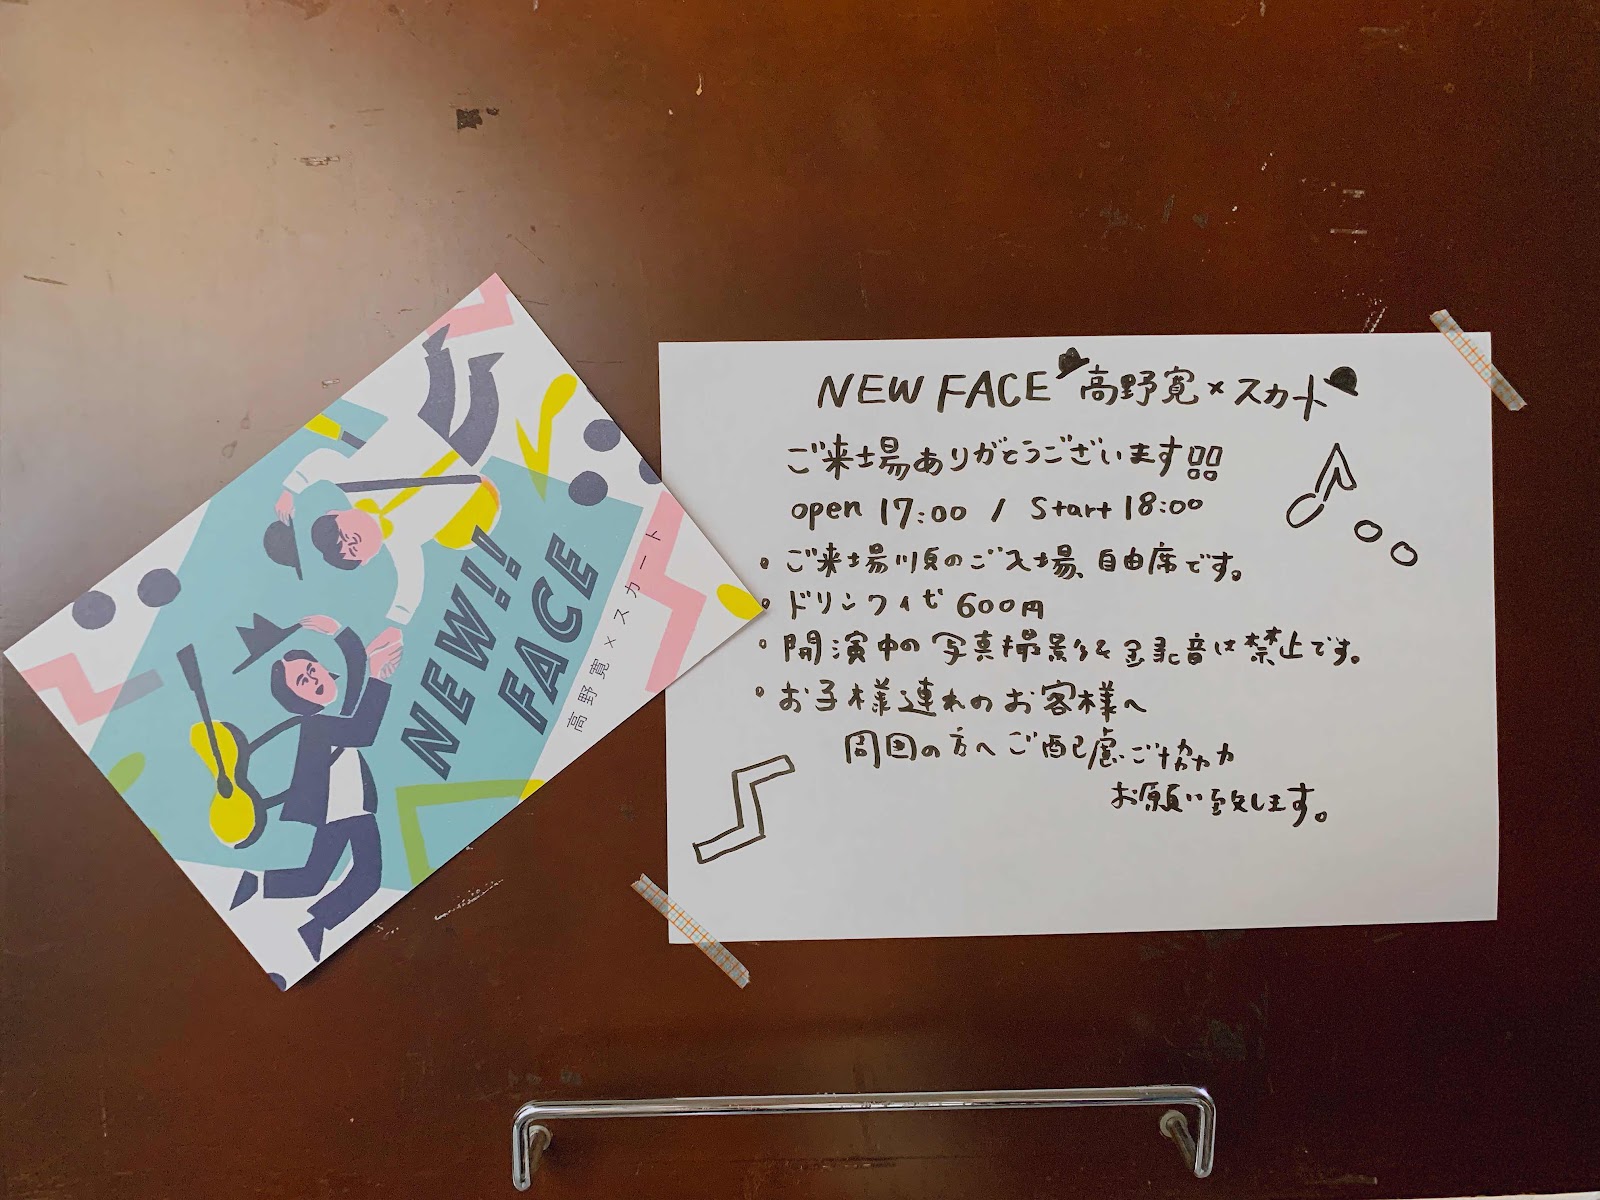 NEW!!
FACE
高野寛×スカート
NEW FACE 高野寛×スカート
ご来場ありがとうございます!!
open 17:00 / Start 18:00
・ご来場順のご入場、自由席です。
・ドリンクイむ 600円
・開演中の写真撮影&録音は禁止です。
・お子様連れのお客様へ
周囲の方へご配慮ご協力
お願い致します。